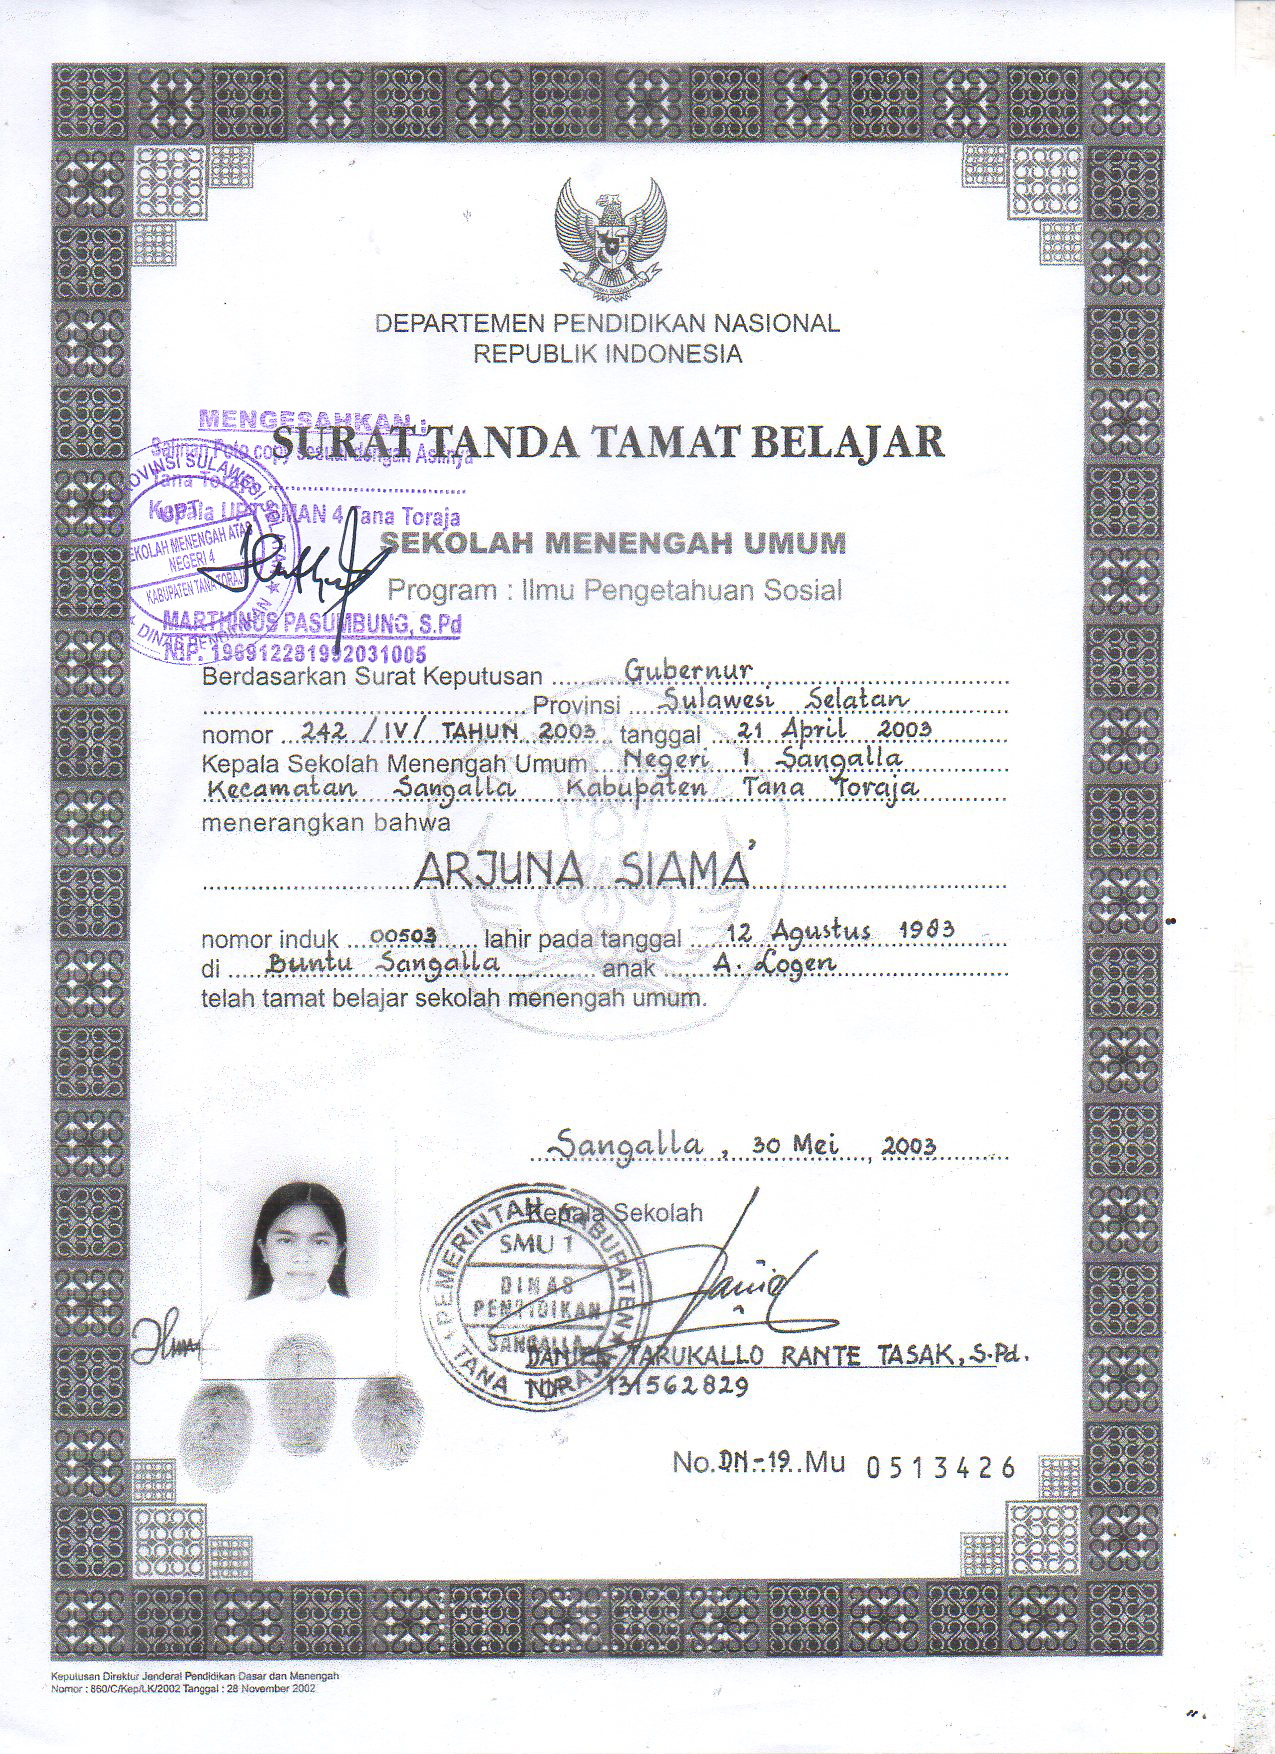 DEPARTEMEN PENDIDIKAN NASIONAL
REPUBLIK INDONESIA
SURAT TANDA TAMAT BELAJAR
MENGESAHKAN :
Salinan Foto copy sesuai dengan Aslinya
Tana Toraja
Kepala UPT SMAN 4 Tana Toraja
MARTHINUS PASUMBUNG, S.Pd
NIP. 196912281992031005
PROVINSI SULAWESI SELATAN
UPT
SEKOLAH MENENGAH ATAS
NEGERI 4
KABUPATEN TANA TORAJA
DINAS PENDIDIKAN
SEKOLAH MENENGAH UMUM
Program : Ilmu Pengetahuan Sosial
Berdasarkan Surat Keputusan Gubernur
Provinsi Sulawesi Selatan
nomor 242 / IV / TAHUN 2003 tanggal 21 April 2003
Kepala Sekolah Menengah Umum Negeri 1 Sangalla
Kecamatan Sangalla Kabupaten Tana Toraja
menerangkan bahwa
ARJUNA SIAMA'
nomor induk 00503 lahir pada tanggal 12 Agustus 1983
di Buntu Sangalla anak A. Logen
telah tamat belajar sekolah menengah umum.
Sangalla, 30 Mei, 2003
Kepala Sekolah
PEMERINTAH KABUPATEN
SMU 1
DINAS
PENDIDIKAN
SANGALLA
TANA TORAJA
DANIEL TARUKALLO RANTE TASAK, S.Pd.
NIP. 131562829
No. DN-19 Mu 0513426
Keputusan Direktur Jenderal Pendidikan Dasar dan Menengah
Nomor : 860/C/Kep/LK/2002 Tanggal : 28 November 2002